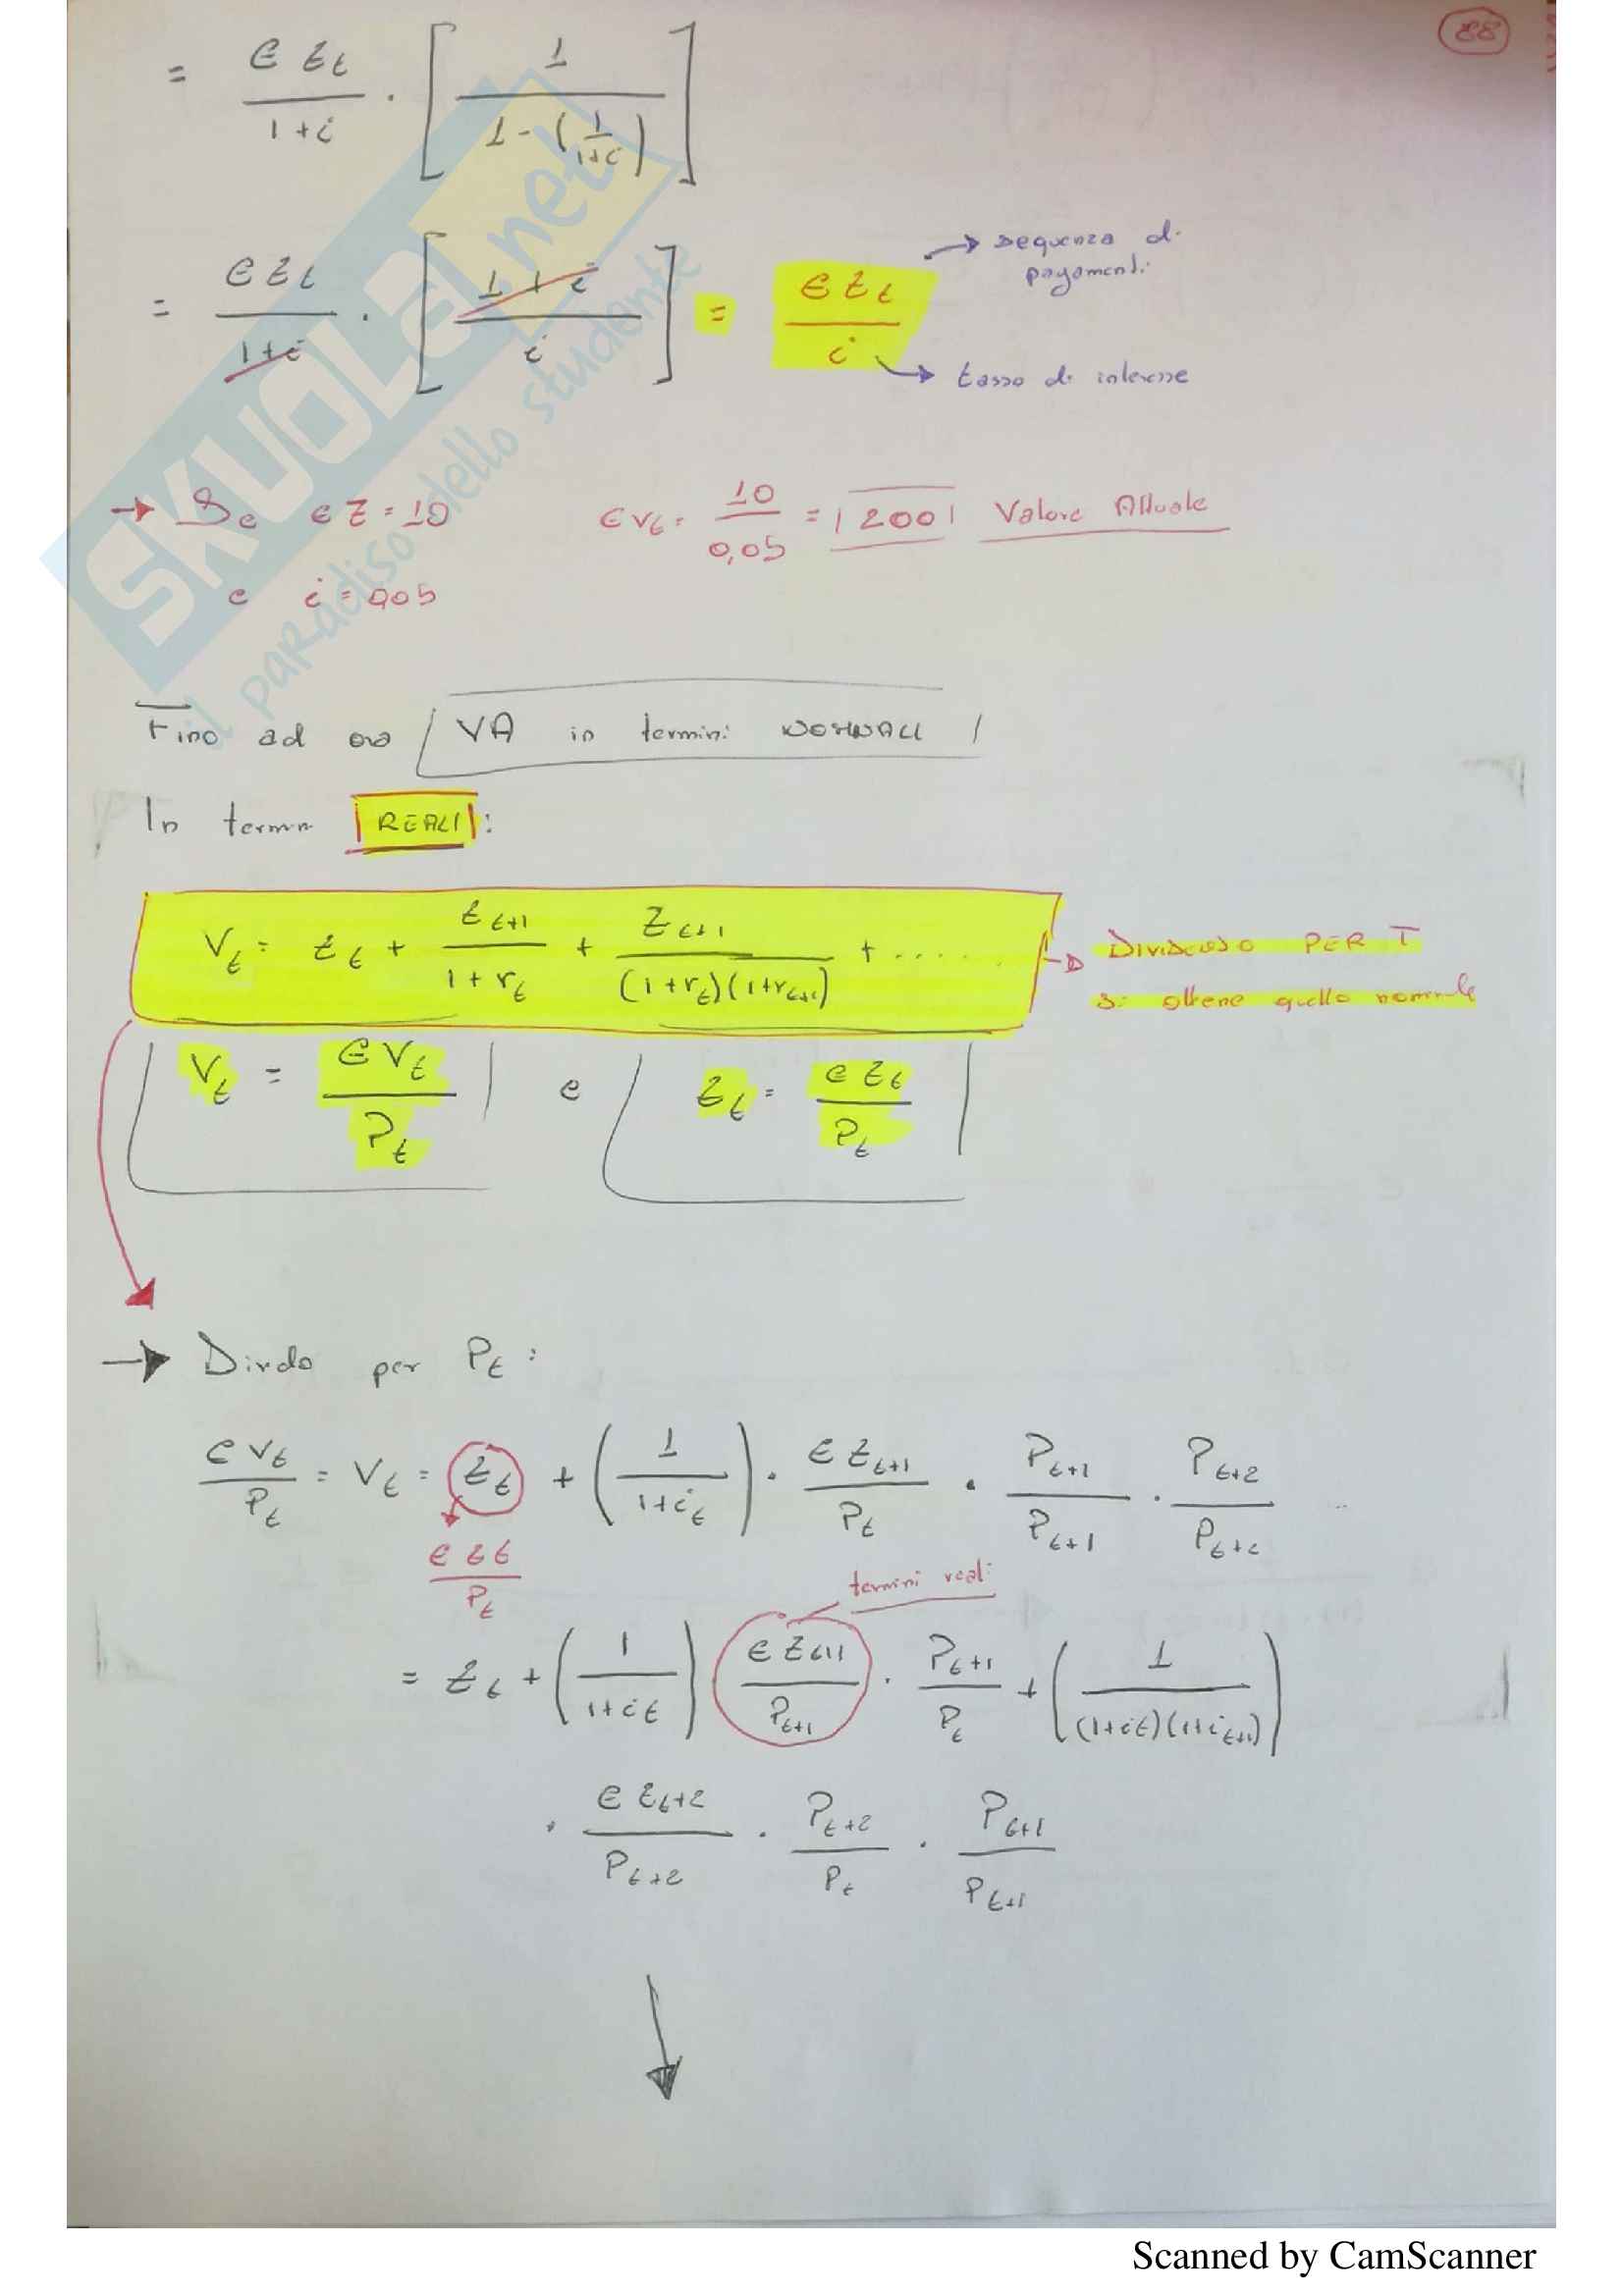 88
= €Zt / 1+i · [ 1 / 1-(1/1+i) ]
= €Zt / 1+i · [ 1+i / i ] = €Zt / i
→ sequenza di
pagamenti
→ tasso di interesse
→ Se €Z=10 €Vt= 10/0,05 = |200| Valore Attuale
e i=0,05
Fino ad ora VA in termini NOMINALI
In termini REALI:
Vt= Zt + Zt+1 / 1+rt + Zt+1 / (1+rt)(1+rt+1) + ......
→ DIVIDENDO PER T
si ottiene quello nominale
Vt = €Vt / Pt e Zt = €Zt / Pt
→ Divido per Pt :
€Vt / Pt = Vt = Zt + (1 / 1+it) · €Zt+1 / Pt · Pt+1 / Pt+1 · Pt+2 / Pt+2 ..
€Zt / Pt
termini reali
= Zt + (1 / 1+it) €Zt+1 / Pt+1 · Pt+1 / Pt + (1 / (1+it)(1+it+1))
· €Zt+2 / Pt+2 · Pt+2 / Pt · Pt+1 / Pt+1
SKUOLA.net
il paradiso dello studente
Scanned by CamScanner